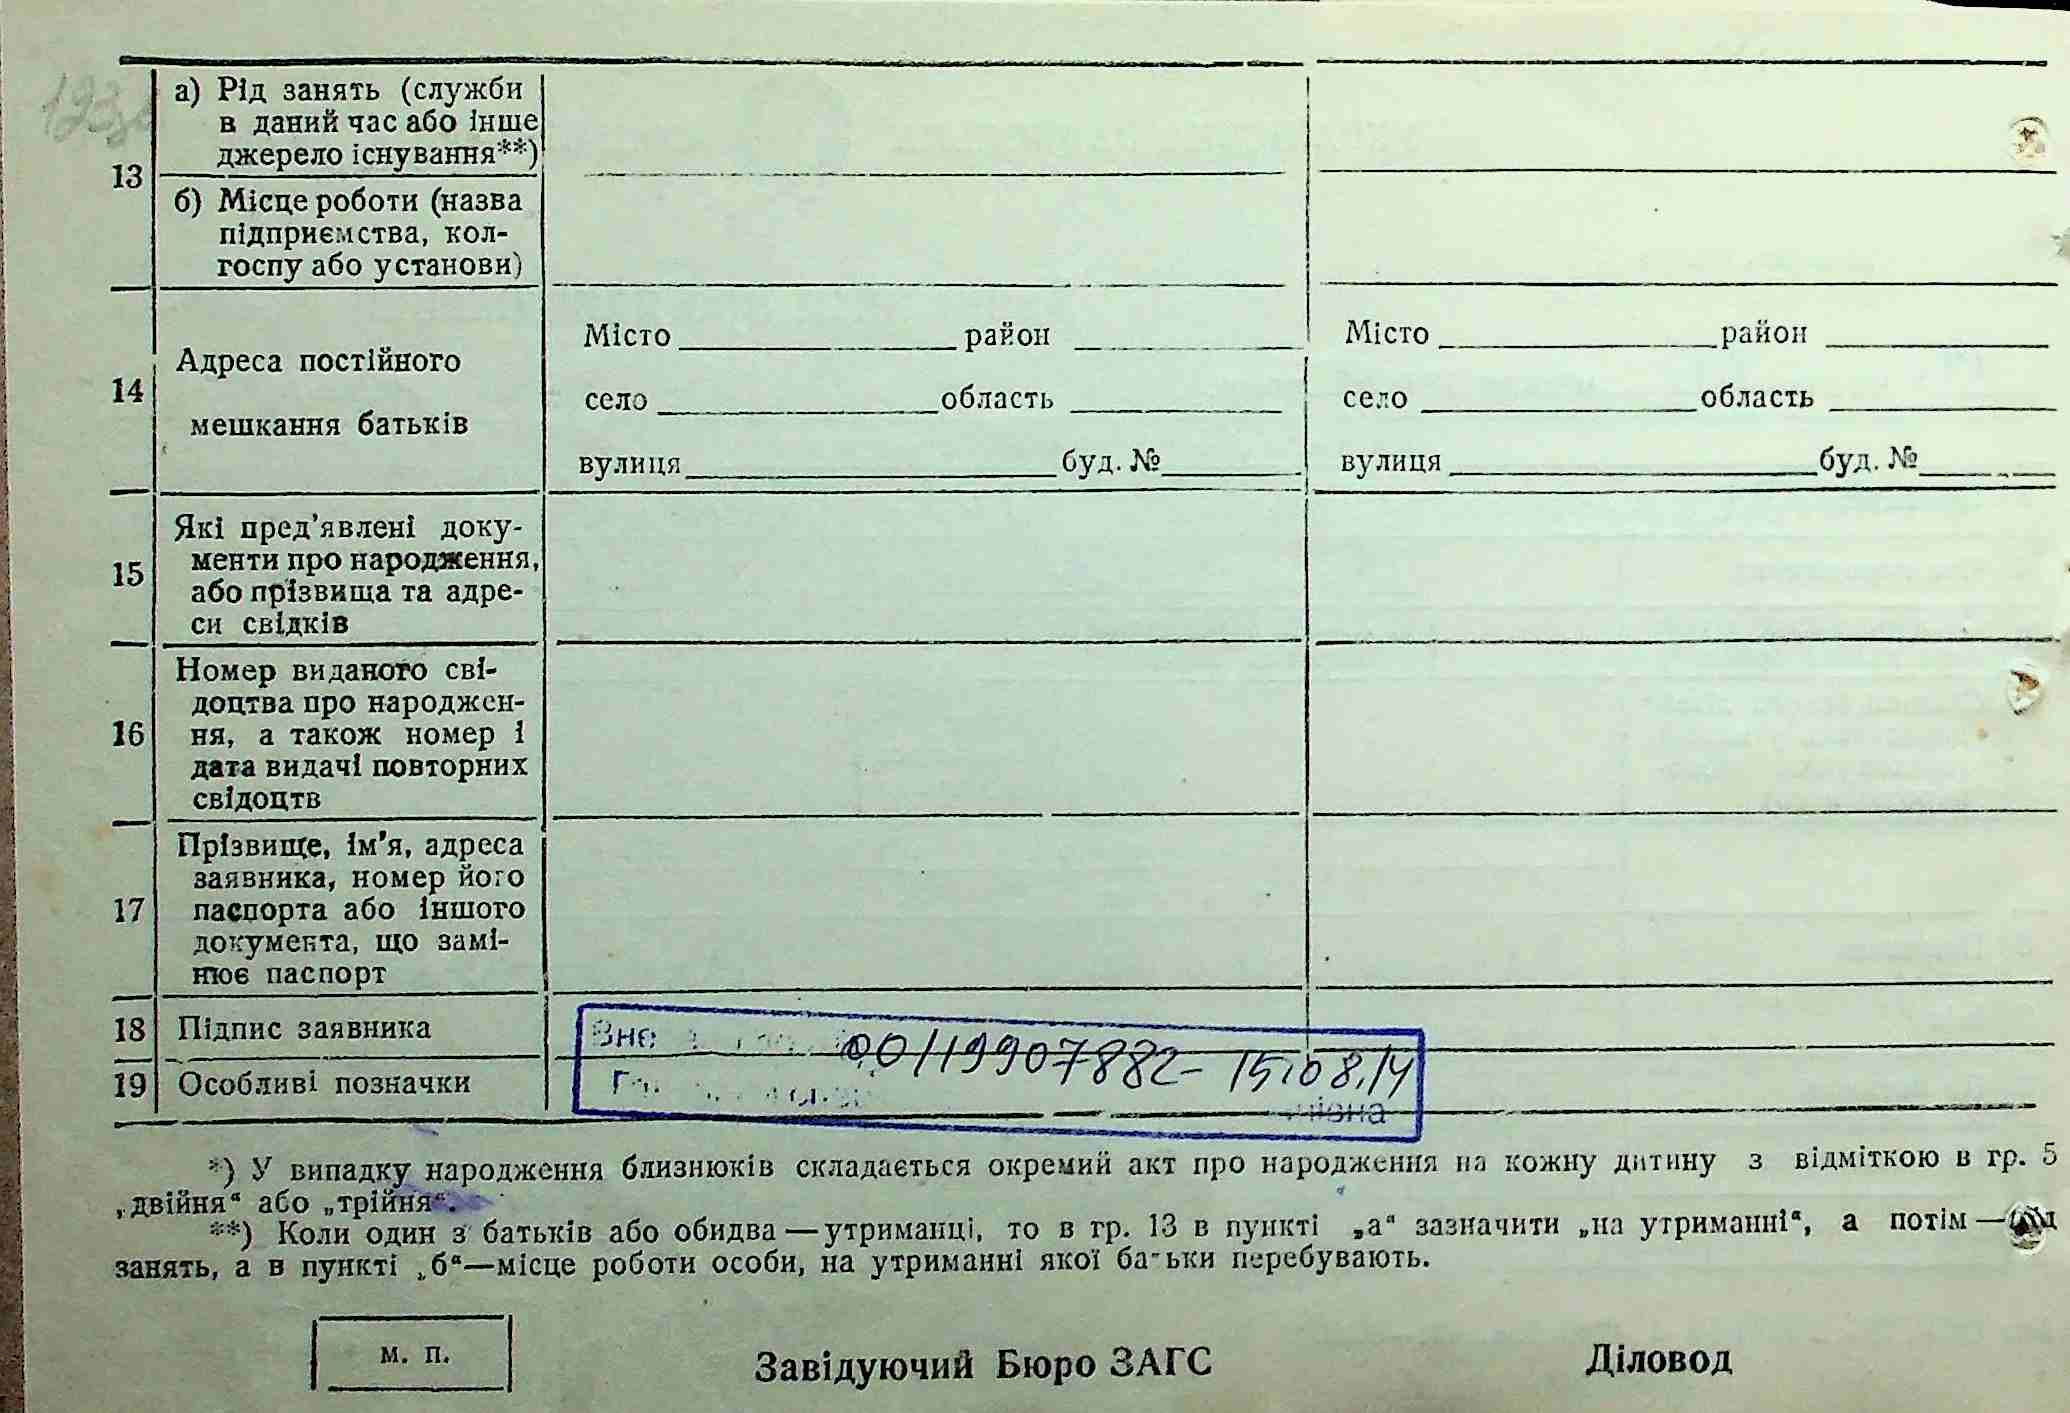 13
а) Рід занять (служби
в даний час або інше
джерело існування**)
б) Місце роботи (назва
підприємства, кол-
госпу або установи)
14
Адреса постійного
мешкання батьків
Місто район
село область
вулиця буд. №
Місто район
село область
вулиця буд. №
15
Які пред’явлені доку-
менти про народження,
або прізвища та адре-
си свідків
16
Номер виданого сві-
доцтва про народжен-
ня, а також номер і
дата видачі повторних
свідоцтв
17
Прізвище, ім’я, адреса
заявника, номер його
паспорта або іншого
документа, що замі-
нює паспорт
18 Підпис заявника
19 Особливі позначки
00119907882- 15.08.14
*) У випадку народження близнюків складається окремий акт про народження на кожну дитину з відміткою в гр. 5
„двійня“ або „трійня“.
**) Коли один з батьків або обидва—утриманці, то в гр. 13 в пункті „а“ зазначити „на утриманні“, а потім—
занять, а в пункті „б“—місце роботи особи, на утриманні якої батьки перебувають.
м. п.
Завідуючий Бюро ЗАГС
Діловод